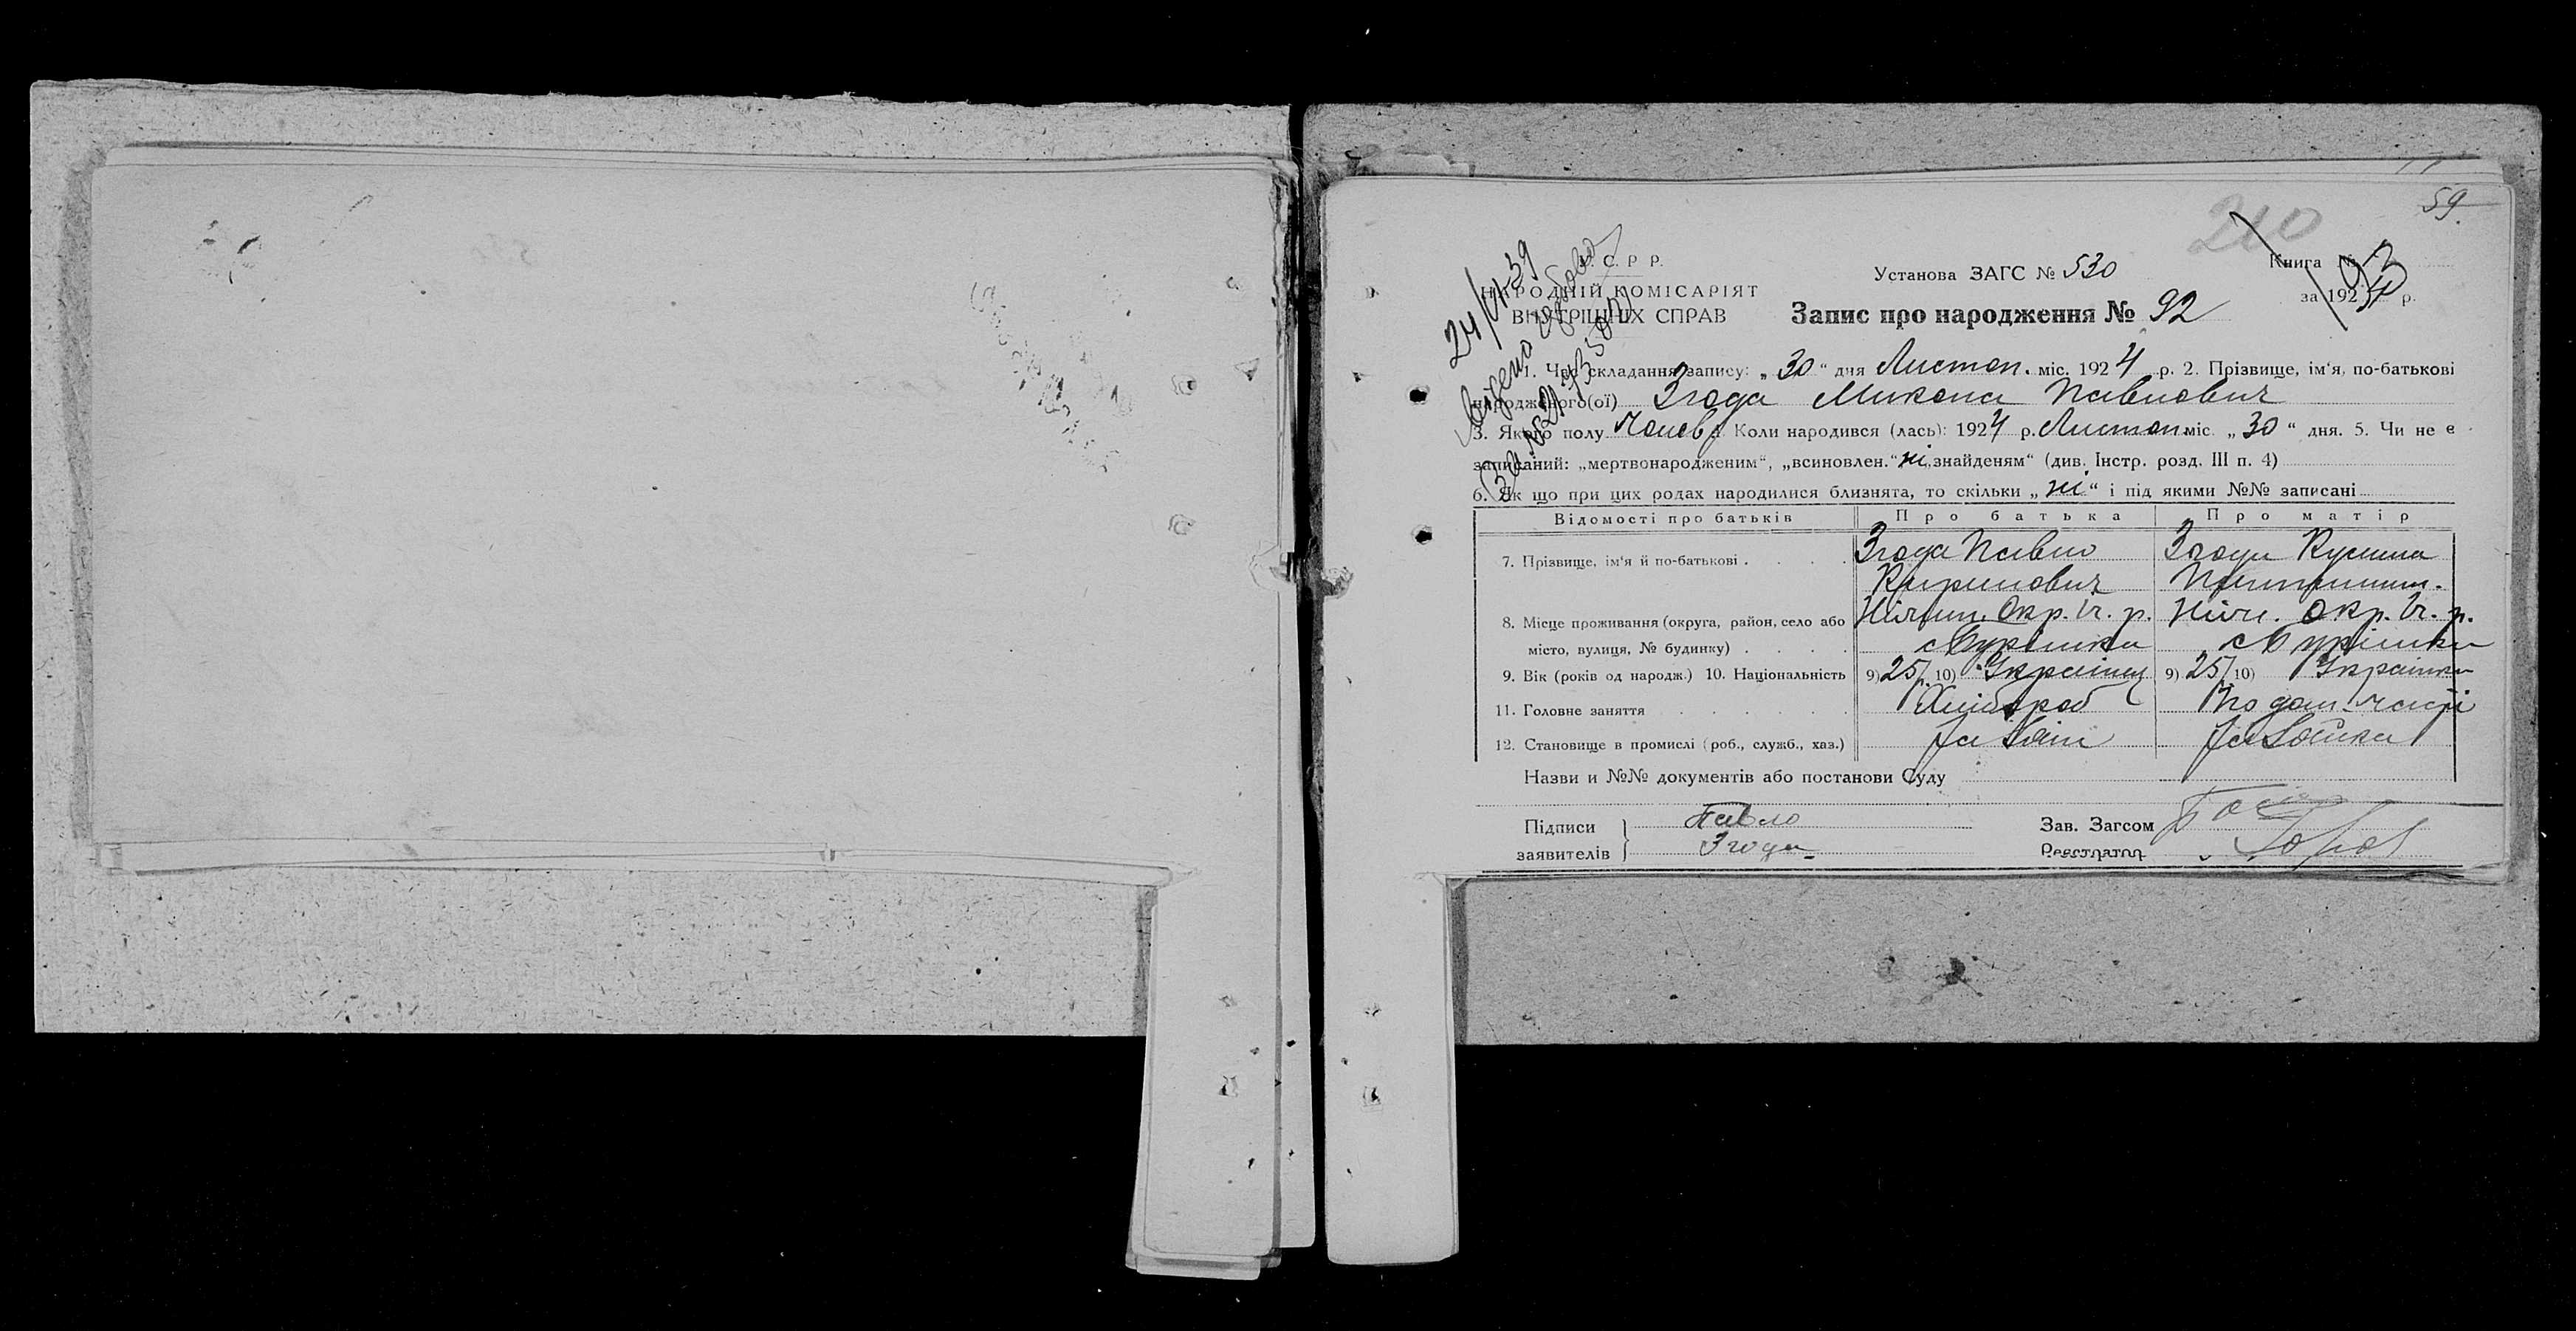 59.
210
У. С. Р Р.
НАРОДНІЙ КОМІСАРІЯТ
ВНУТРІШНІХ СПРАВ
24/VI-39
Установа ЗАГС № 530
Книга №
за 192 р.
Запис про народження № 92
1. Час складання запису: „ 30 “ дня Листоп. міс. 1924 р. 2. Прізвище, ім‘я, по-батькові
народженого(ої) Згода Микола Павлович
3. Якого полу Чолов 4. Коли народився (лась): 1924 р. Листоп. міс. „ 30 “ дня. 5. Чи не є
записаний: „мертвонародженим“, „всиновлен.“ ні „знайденям“ (див. Інстр. розд. III п. 4)
6. Як що при цих родах народилися близнята, то скільки „ ні “ і під якими №№ записані
Відомості про батьків Про батька Про матір
7. Прізвище, ім‘я й по-батькові Згода Павло Згода
Кирилович
8. Місце проживання (округа, район, село або Окр. Іч. р. Ніжи. Окр. Іч. р.
місто, вулиця, № будинку)
9. Вік (років од народж.) 10. Національність 9) 25 10) Українец 9) 25 10) Українка
11. Головне заняття Хлібороб По дом.
12. Становище в промислі (роб., служб., хаз.) Хазяїн Хазяйка
Назви и №№ документів або постанови Суду
Підписи Павло Зав. Загсом
заявителів Згода Реєстратор